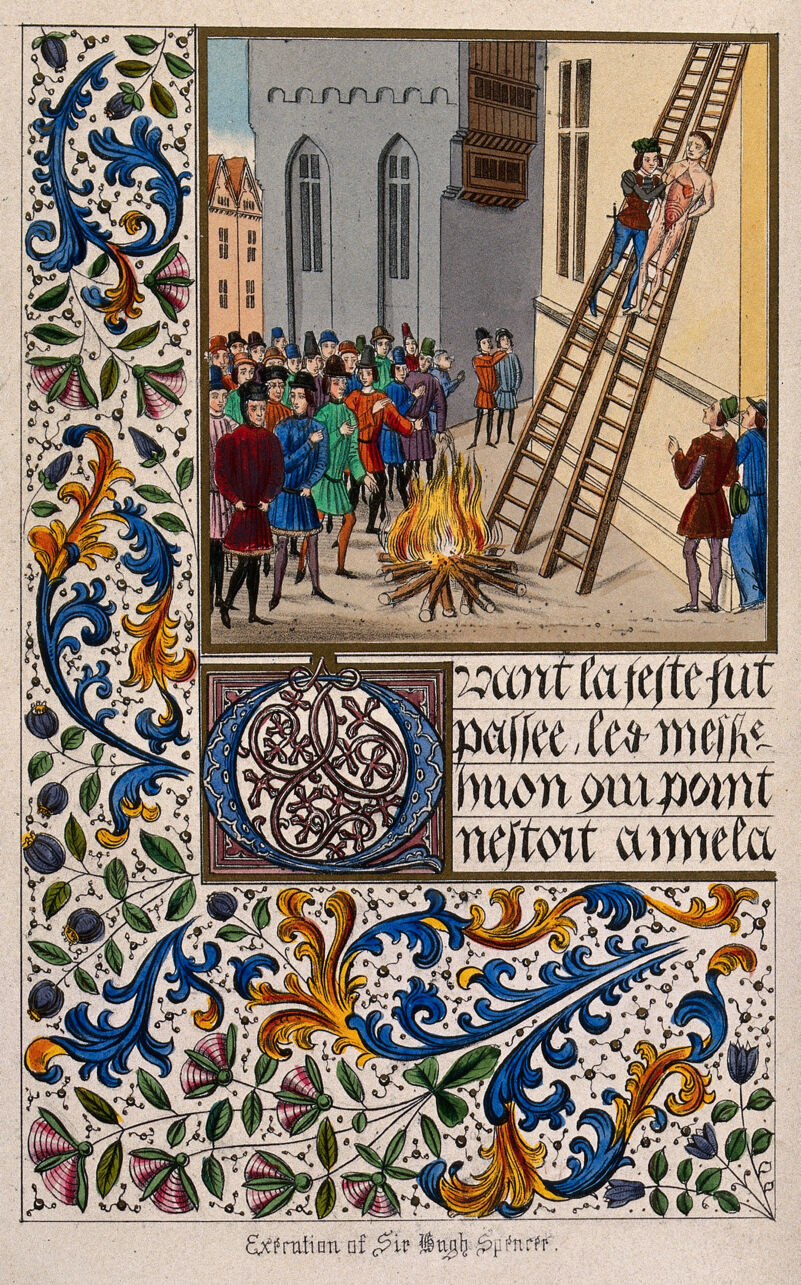 Quant la feste fut
passee, les messire
huon qui point
nestoit aimela
Execution of Sir Hugh Spencer.